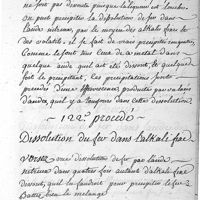 ne font par
on peut précipiter la dissolution de fer dans
l'acide nitreux, par le moyen des alkali fixe
des volatils. il se fait de vrais precipités
comme le font tous ceux de ce metal dans
quelque acide quil ait été dissout, de quelque
soit le precipitant. Ces precipitations sont
grande effervescence produite par
l'acide, qui y a toujours dans cette dissolution.
122e procedé
Dissolution du fer dans l'alkali fixe
Versés une dissolution de fer par l'acide
nitreux dans quatre fois autant d'alkali fixe
dissout, quil en faudroit pour precipiter le fer
Battés bien le mélange